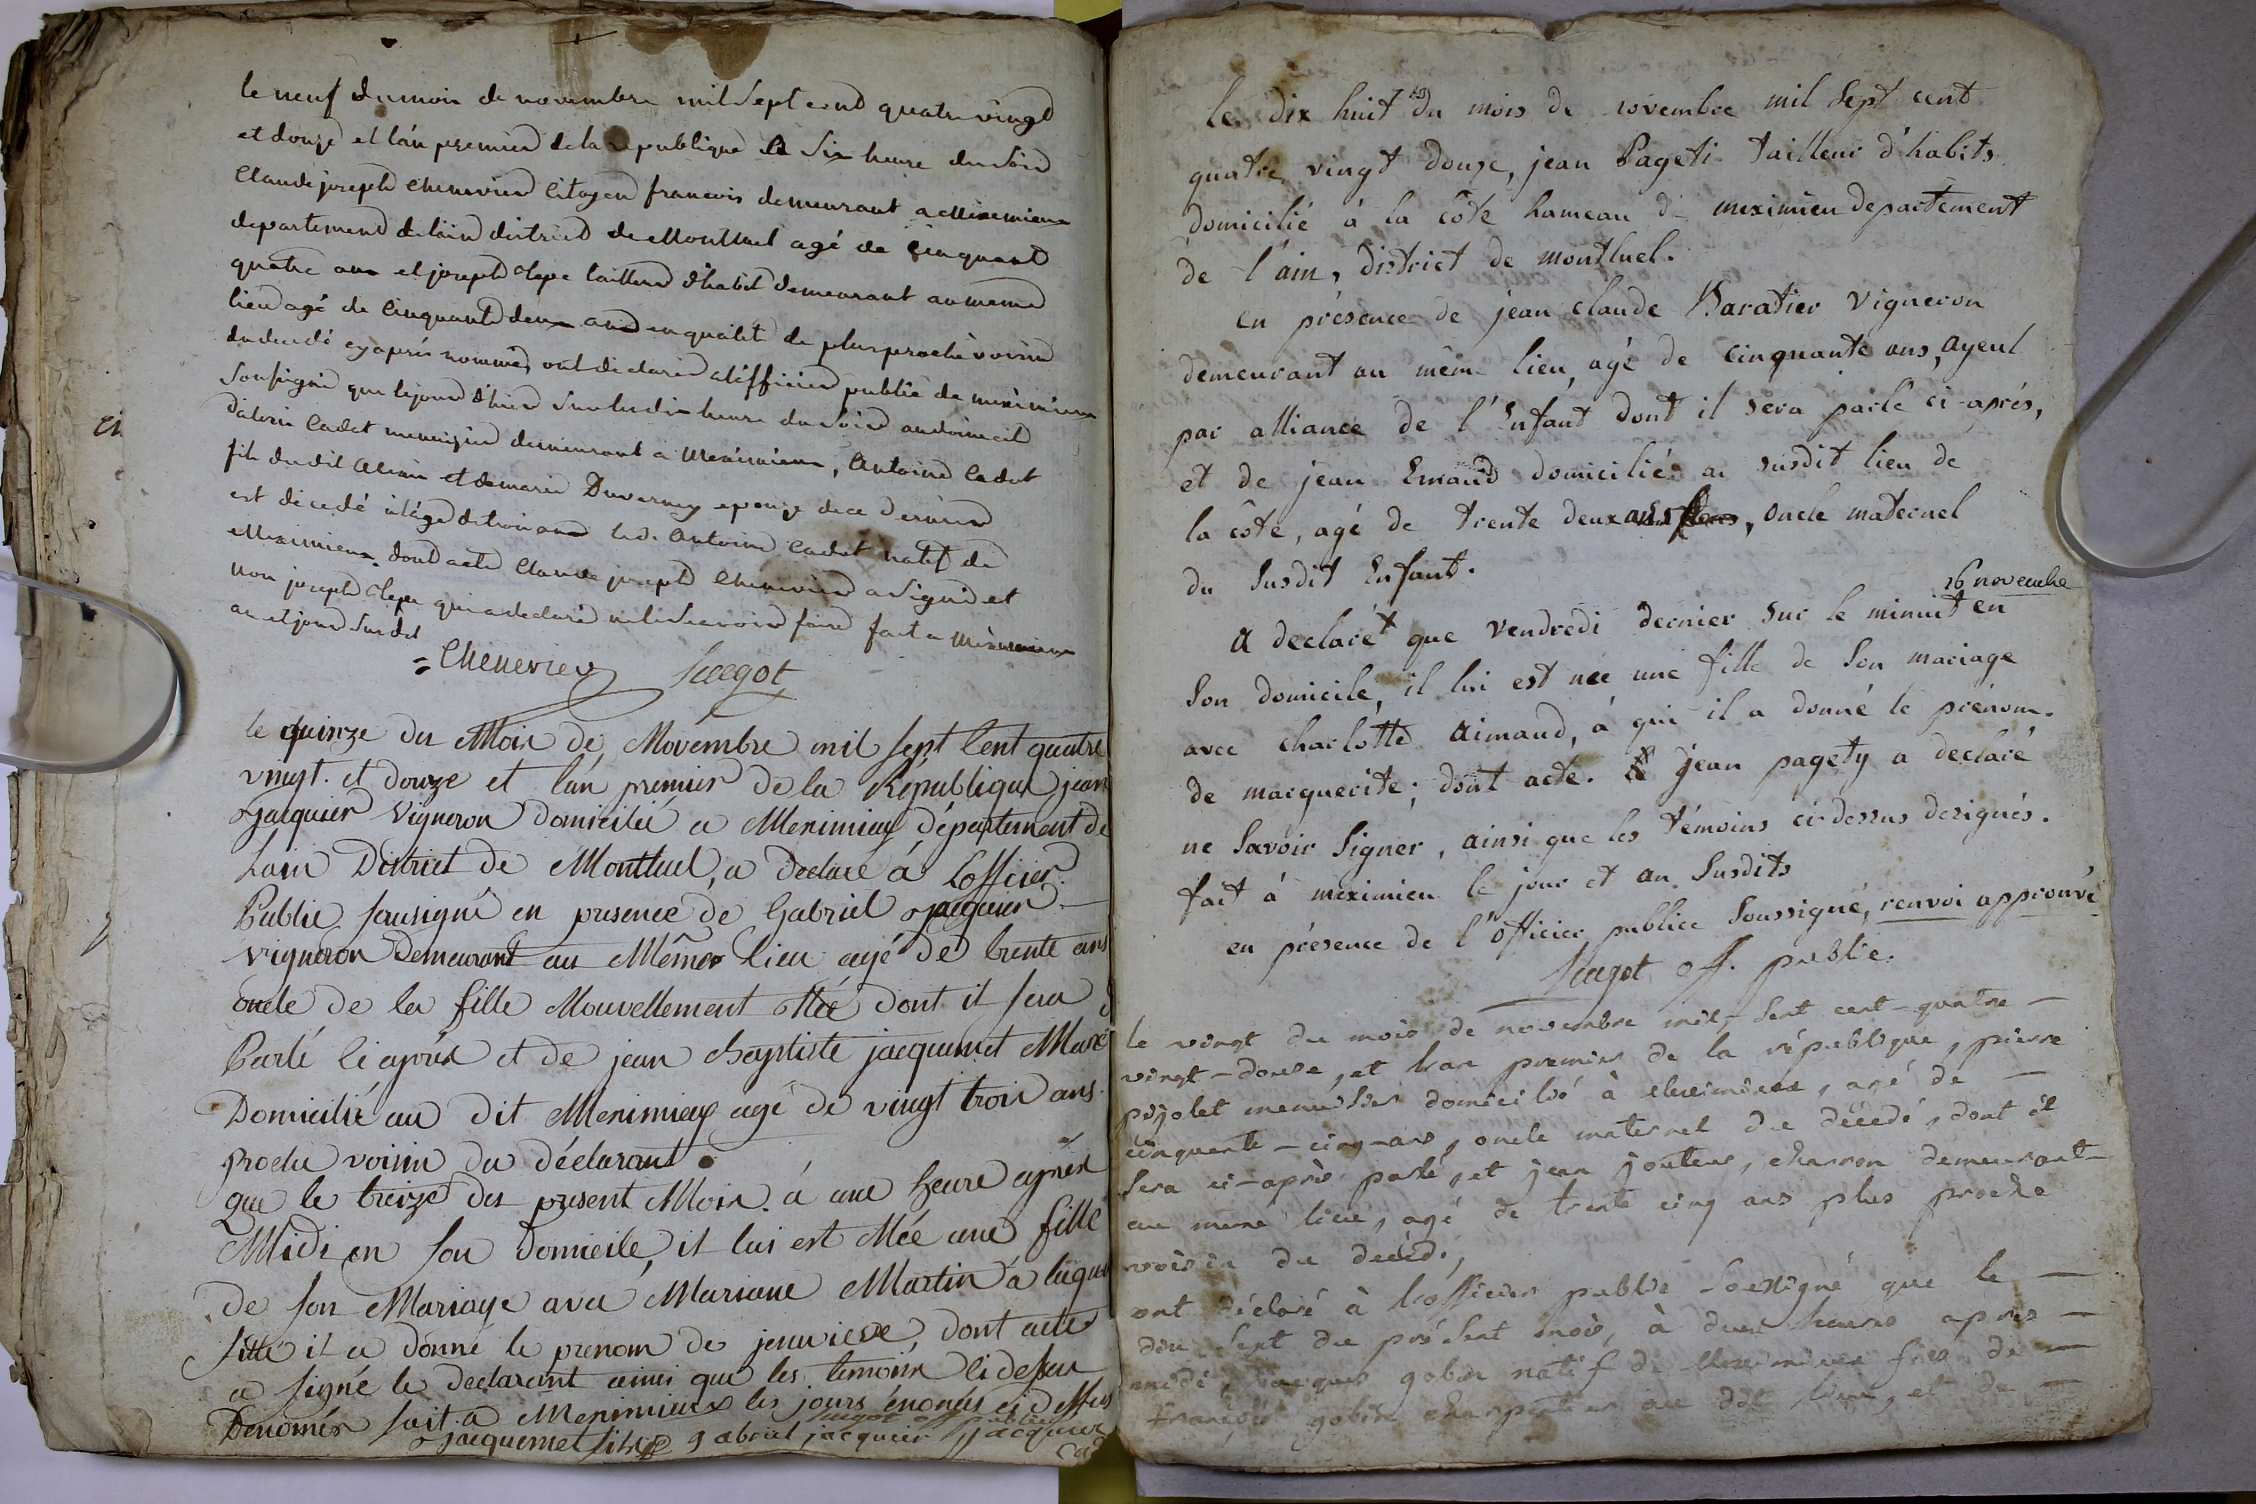 le neuf du mois de novembre mil sept cend quatre vingd
et douze et lán premier de la republique a six heure du soir
Claude joseph chenevier Citoyen francois demeurant a Meximieux
departement delain district de Montluel agé de Cinquant
quatre ans et joseph tailleur d'habit demeurant au meme
lieu agé de Cinquante deux ans en qualité de plus proche voisin
du decedé cy aprés nommé, ont declaré a léfficier public de meximieux
Soussigné que le jour d'hier sur les dix heure du soir au domicil
Cadet menuzier demeurant a Meximieux, Antoine Cadet
fils dudit et de marie Duverney epouze de ce dernier
est décedé a lâge de trois ans led. Antoine Cadet natif de
Meximieux. dont acte Claude joseph Chenevier a Signé et
non joseph qui a declaré ne le scavoir faire fait a Meximieux
an et jour susdit
= Chenevier Jacgot
le quinze du Mois de Novembre mil sept Cent quatre
vingt et douze et lán premier de la Republique jean
Jacquier Vigneron Domicilié a Meximieux département de
Lain District de Montluel, a declaré á Lofficier
Public sousigné en presence de Gabriel Jacquier
Vigneron Demeurant au Même Lieu agé de trente ans
oncle de la fille Nouvellement Née dont il sera
Parlé Ci aprés et de jean Baptiste jacquemet
Domicilié au dit Meximieux agé de vingt trois ans
proche voisin du déclarant
que le treize du present Mois á une heure aprés
Midi en son Domicile, il lui est Née une fille
de son Mariage avec Mariane Martin a laquel
fille il a donné le prenom de jenvieve, dont acte
a signé le declarant ainsi que les temoins Ci dessu
Denomés fait a Meximieux les jours énoncés ci dessus
jacquemet gabriel jacquier jacquier
le dix huit du mois de novembre mil sept cent
quatre vingt douze, jean Pageti tailleur d'habits
domicilié à la côte hameau de meximieu departement
de l'ain, district de montluel.
en présence de jean claude Baratier vigneron
demeurant au même lieu, agé de cinquante ans, ayeul
par alliance de l'Enfant dont il sera parlé ci-aprés,
et de jean Emaud domicilié au susdit lieu de
la côte, agé de trente deux ans, oncle maternel
du susdit Enfant.
16 novembre
a declaré x que vendredi dernier sur le minuit en
son domicile, il lui est née une fille de son mariage
avec charlotte aimaud, á qui il a donné le prénom
de marguerite; dont acte. jean pagety a declaré
ne savoir signer, ainsi que les témoins ci-dessus designés.
fait á meximieu le jour et an susdits
en présence de l'officier publice soussigné, renvoi approuvé
Jacgot off. public.
le vingt du mois de novembre mil sept cent quatre
vingt-douze, et l'an premier de la république, pierre
pijolet menuisier domicilié à Meximieux, agé de
cinquante-cinq ans, oncle maternel du décédé, dont il
sera ci-après parlé, et jean jouteur, charron demeurant
au même lieu, agé de trente cinq ans plus proche
voisin du décédé,
ont déclaré à l'officier public soussigné que le
dix sept du présent mois, à deux heures apres
midi jacques gobin natif de Meximieux fils de
françois gobin charpentier au dit lieu, et de